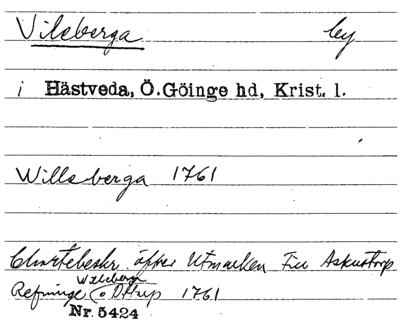 Vilsberga by
i Hästveda, Ö. Göinge hd, Krist. l.
Willsberga 1761
Chartebeskr öfver Utmarken Till Askustorp
Wilsberga
Refninge o Ottarp 1761
Nr. 5424